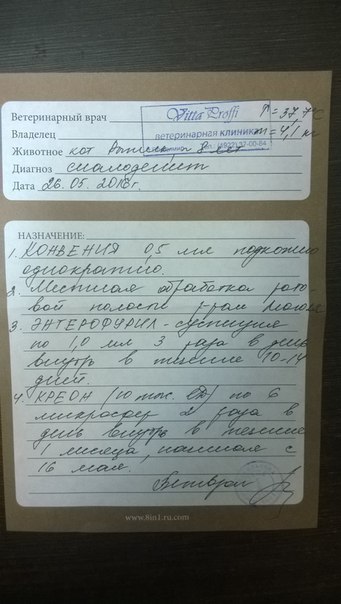 Ветеринарный врач
Vitta Proffi
t = 37,7°C
Владелец
ветеринарная клиника
m = 4,1 кг
(4822) 37-00-84
Животное кот 8 лет
Диагноз сиалоденит
Дата 26.05.2016г.
НАЗНАЧЕНИЕ:
1. КОНВЕНИЯ 0,5 мл подкожно
однократно.
2. Местная обработка рото-
вой полости
3. ЭНТЕРОФУРИЛ - суспензия
по 1,0 мл 3 раза в день
внутрь в течение 10-14
дней.
4. КРЕОН (10 тыс. ЕД) по 6
микросфер 2 раза в
день внутрь в течение
1 месяца, начиная с
16 мая.
www.8in1.ru.com